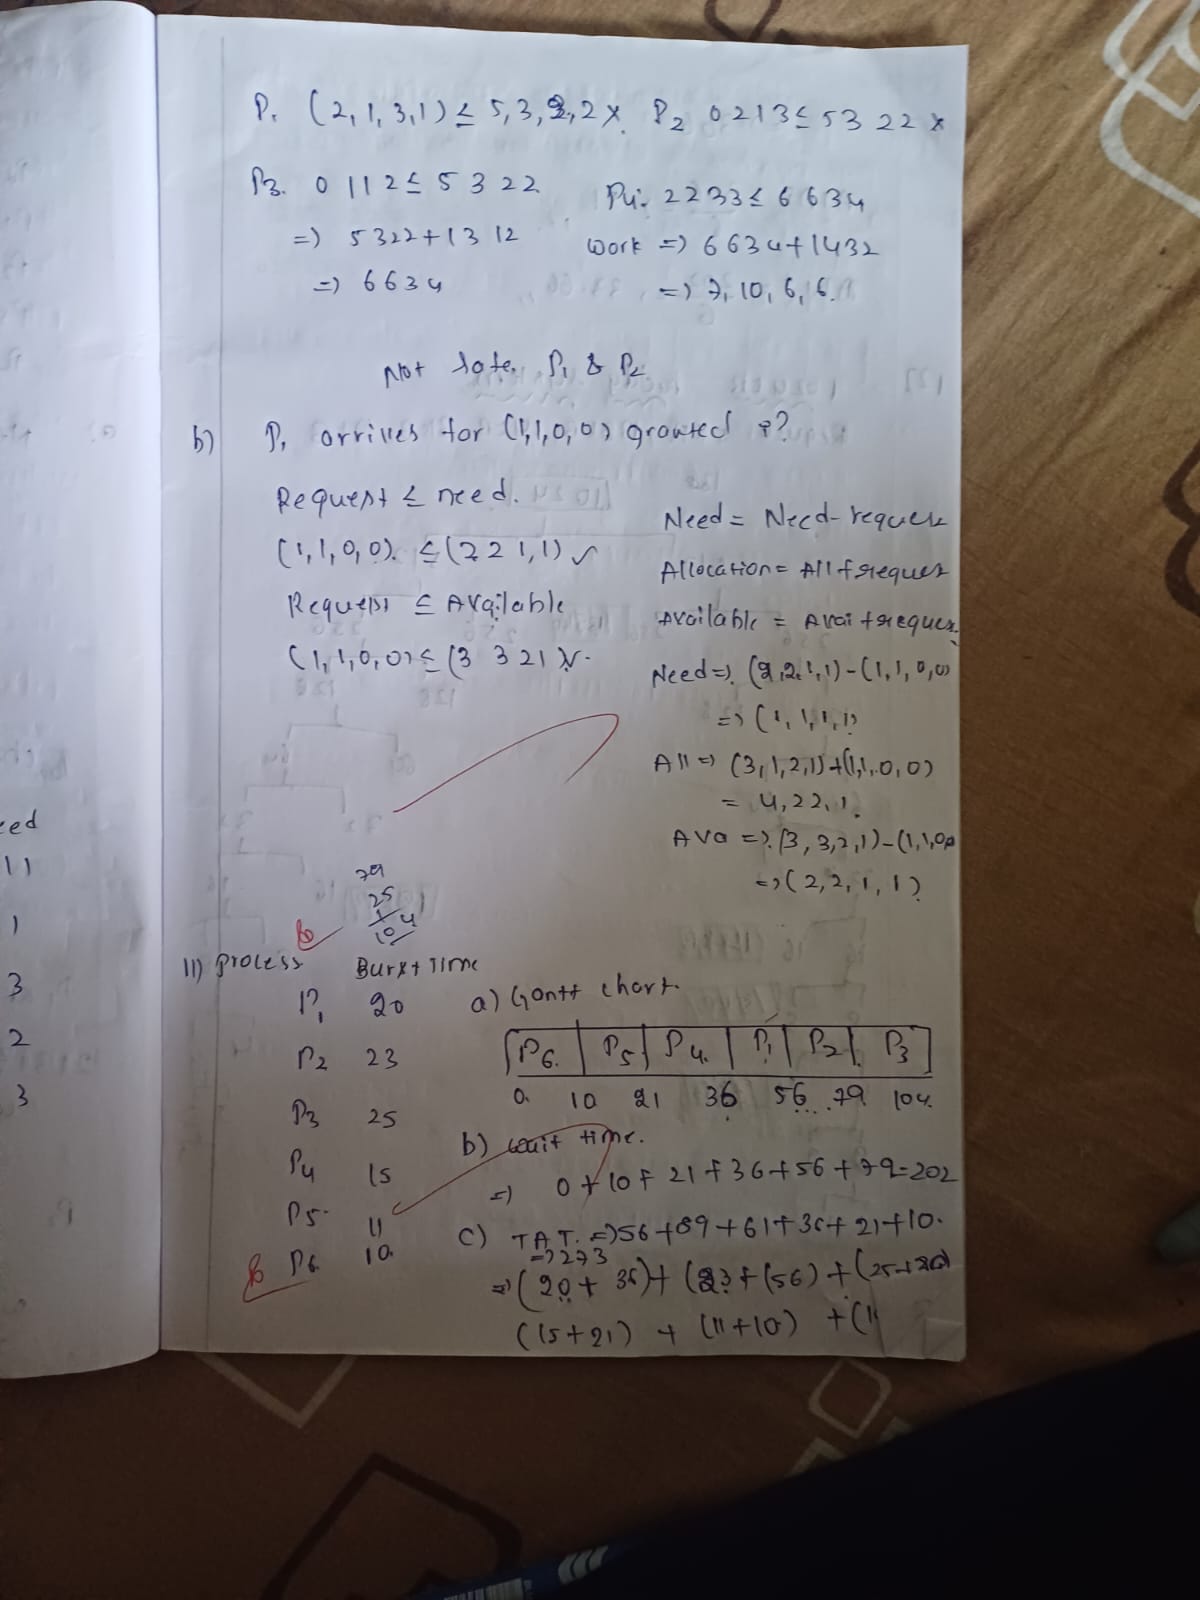 P1 (2,1,3,1) ≤ 5,3,2,2 x. P2 0213 ≤ 5322 x
P3. 0112 ≤ 5322
=) 5322+1312
=) 6634
P4. 2233 ≤ 6634
Work =) 6634+1432
=) 7,10,6,6.
Not safe, P1 & P2
b) P1 arrives for (1,1,0,0) granted ?
Request ≤ need.
(1,1,0,0). ≤ (2 2 1,1) ✓
Request ≤ Available
(1,1,0,0) ≤ (3 3 2 1) ✓.
Need = Need - request
Allocation = All + request
Available = Avai + request
Need =). (2,2,1,1) - (1,1,0,0)
=) (1,1,1,1)
All =) (3,1,2,1) + (1,1,0,0)
= 4,2 2,1.
Ava =). (3,3,2,1) - (1,1,0,0
=) (2,2,1,1)
79
25
104
11) Process Burst Time
P1 20
P2 23
P3 25
P4 15
P5. 11
P6 10.
a) Gantt chart.
P6. P5 P4. P1 P2 P3
0. 10 21 36 56 79 104.
b) wait time.
=) 0+10+21+36+56+79=202
c) TAT. =) 56+89+61+36+21+10.
=) 273
=) (20+36)+(23+(56)+(25+
(15+21) + (11+10) +(1
eed
11
1
3
2
3